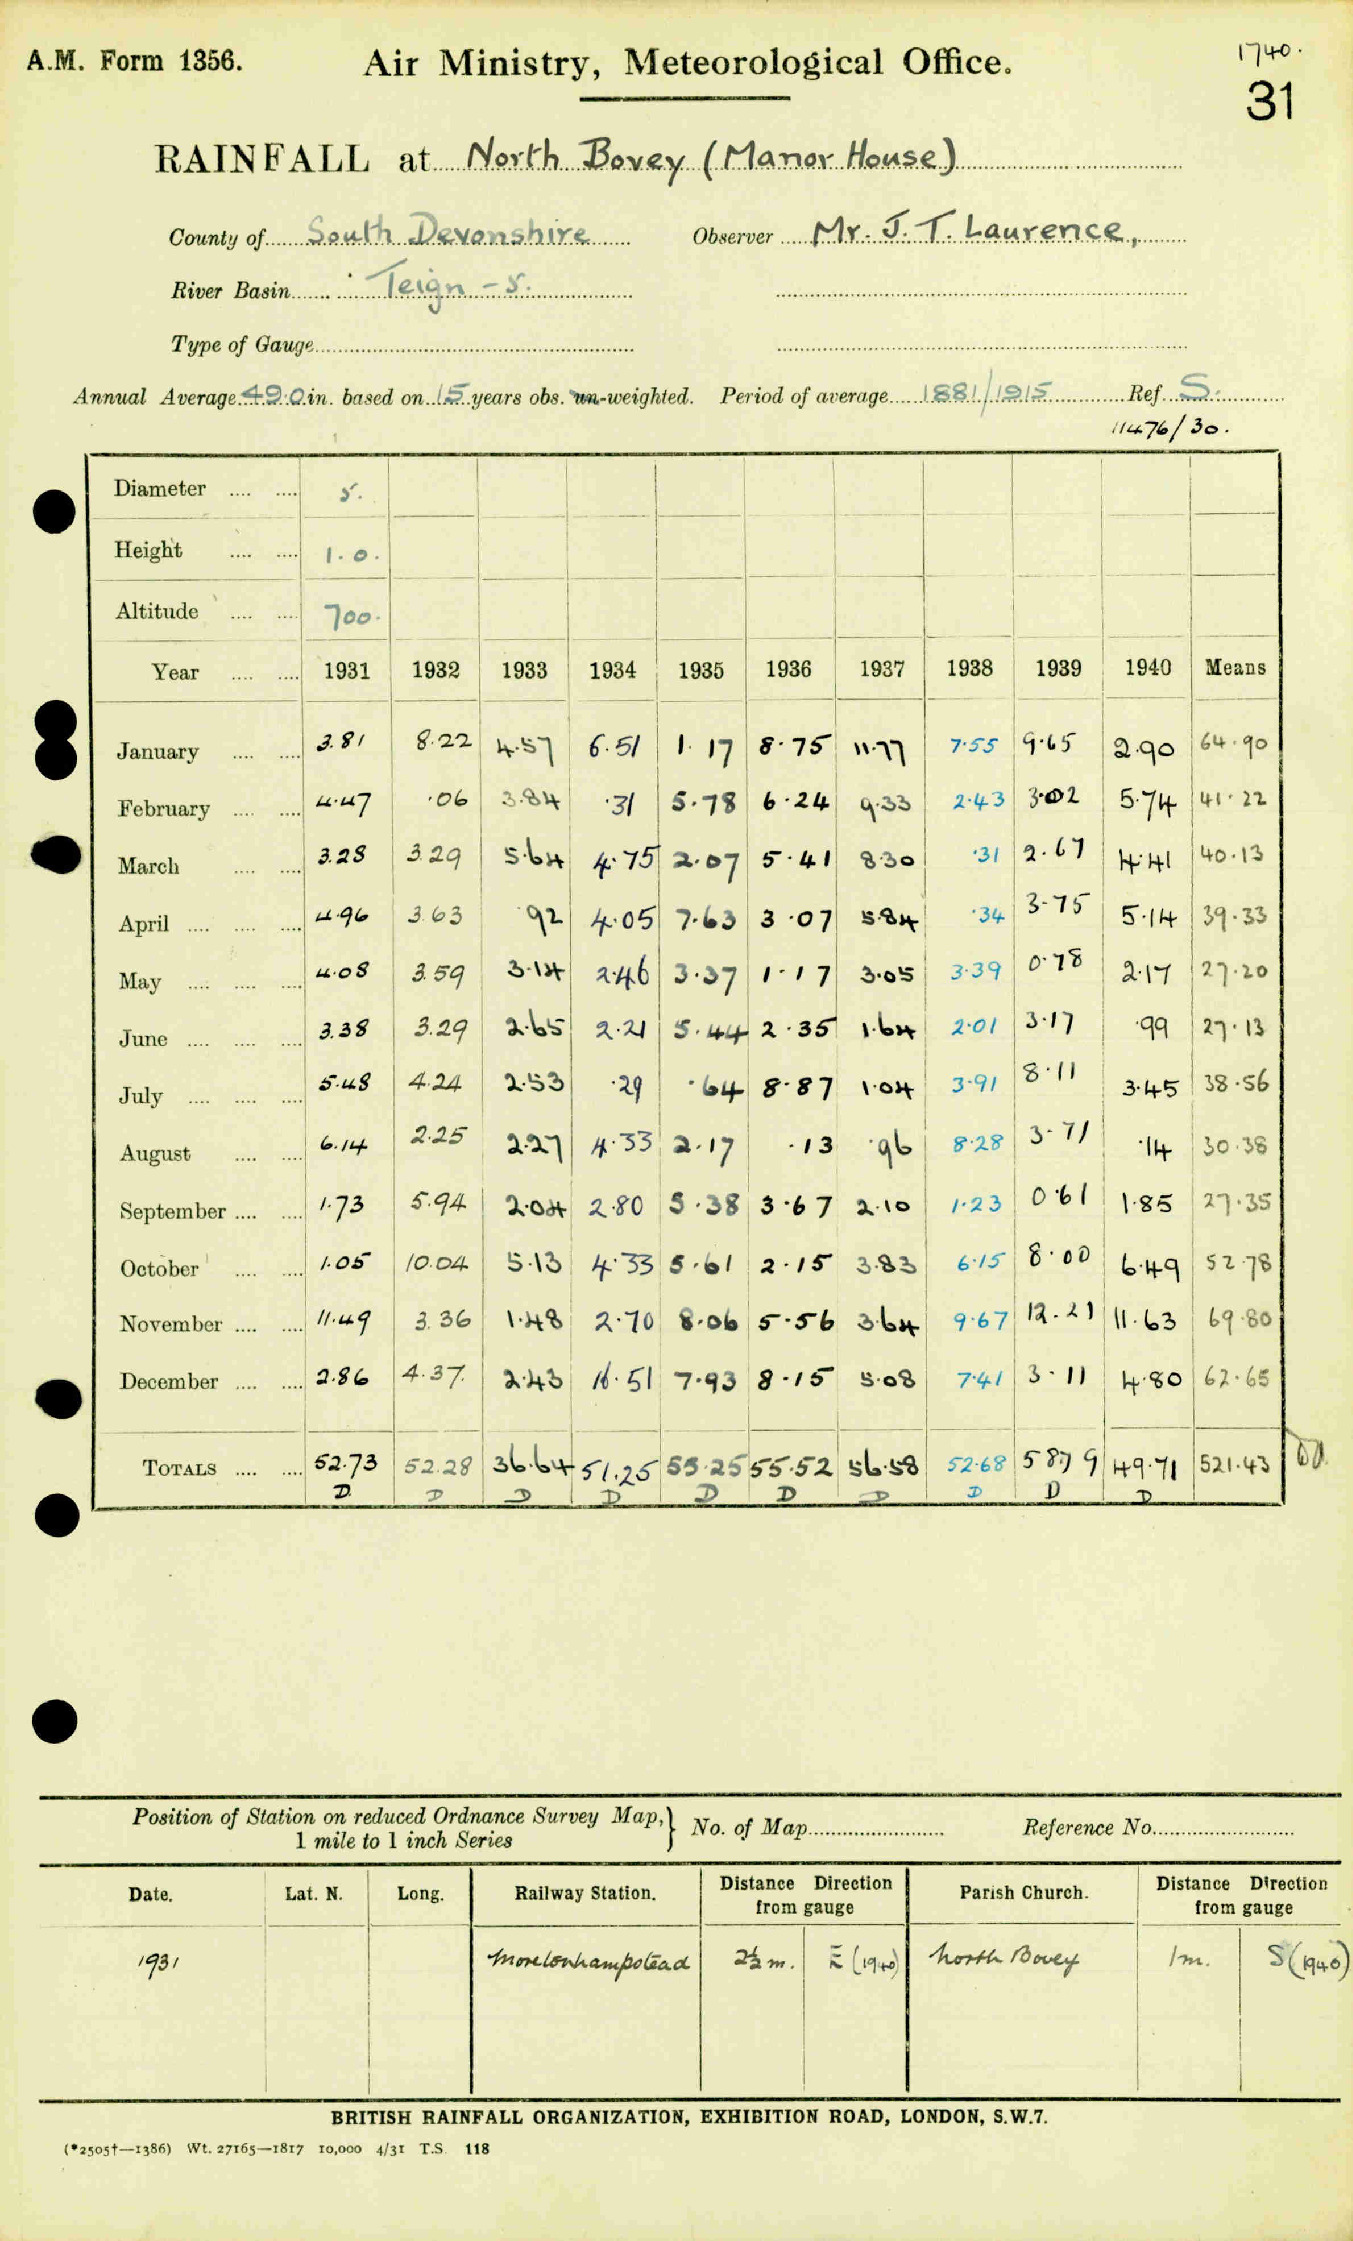 A.M. Form 1356. Air Ministry, Meteorological Office. 1740.
31
RAINFALL at North Bovey (Manor House)
County of South Devonshire Observer Mr. J. T. Laurence,
River Basin Teign - 5.
Type of Gauge
Annual Average 49.0 in. based on 15 years obs. un-weighted. Period of average 1881/1915 Ref. S.
11476/30.
Diameter .... .... 5.
Height .... .... 1.0.
Altitude .... .... 700.
Year .... .... 1931 1932 1933 1934 1935 1936 1937 1938 1939 1940 Means
January .... .... 3.81 8.22 4.57 6.51 1.17 8.75 11.77 7.55 9.65 2.90 64.90
February .... .... 4.47 .06 3.84 .31 5.78 6.24 9.33 2.43 3.02 5.74 41.22
March .... .... 3.28 3.29 5.64 4.75 2.07 5.41 8.30 .31 2.67 4.41 40.13
April .... .... .... 4.96 3.63 .92 4.05 7.63 3.07 5.84 .34 3.75 5.14 39.33
May .... .... .... 4.08 3.59 3.14 2.46 3.37 1.17 3.05 3.39 0.78 2.17 27.20
June .... .... .... 3.38 3.29 2.65 2.21 5.44 2.35 1.64 2.01 3.17 .99 27.13
July .... .... .... 5.48 4.24 2.53 .29 .64 8.87 1.04 3.91 8.11 3.45 38.56
August .... .... 6.14 2.25 2.27 4.33 2.17 .13 .96 8.28 3.71 .14 30.38
September .... .... 1.73 5.94 2.04 2.80 5.38 3.67 2.10 1.23 0.61 1.85 27.35
October .... .... 1.05 10.04 5.13 4.33 5.61 2.15 3.83 6.15 8.00 6.49 52.78
November .... .... 11.49 3.36 1.48 2.70 8.06 5.56 3.64 9.67 12.21 11.63 69.80
December .... .... 2.86 4.37. 2.43 16.51 7.93 8.15 5.08 7.41 3.11 4.80 62.65
TOTALS .... .... 52.73 52.28 36.64 51.25 55.25 55.52 56.58 52.68 58.79 49.71 521.43
D D D D D D D D D D
Position of Station on reduced Ordnance Survey Map,} No. of Map Reference No.
1 mile to 1 inch Series
Date. Lat. N. Long. Railway Station. Distance Direction from gauge Parish Church. Distance Direction from gauge
1931 Moretonhampstead 2½ m. E (1940) North Bovey 1 m. S (1940)
BRITISH RAINFALL ORGANIZATION, EXHIBITION ROAD, LONDON, S.W.7.
(*2505†—1386) Wt. 27165—1817 10,000 4/31 T.S. 118